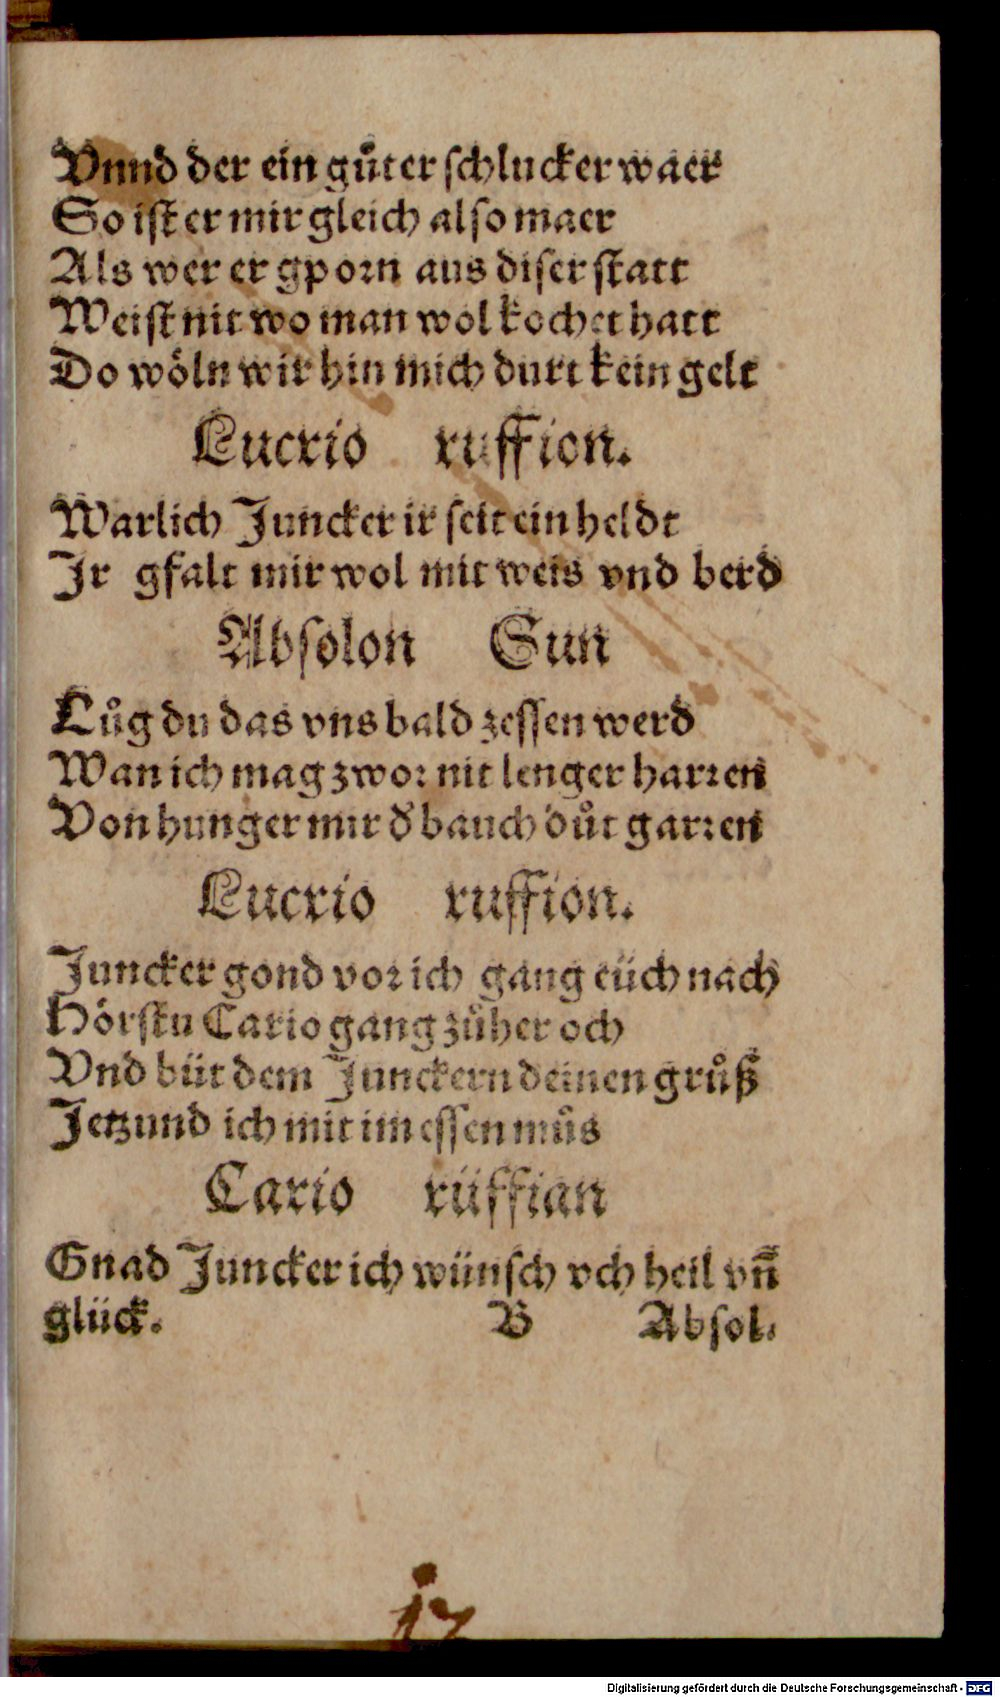 Vnnd der ein gůter ſchlucker waer
So iſt er mir gleich alſo maer
Als wer er gporn aus diſer ſtatt
Weiſt nit wo man wol kochet hatt
Do wöln wir hin mich durt kein gelt
Lucrio ruffion.
Warlich Juncker ir ſeit ein heldt
Jr gfalt mir wol mit weis vnd berd
Abſolon Sun
Lůg du das vns bald zeſſen werd
Wan ich mag zwor nit lenger harren
Von hunger mir d' bauch důt garren
Lucrio ruffion.
Juncker gond vor ich gang eüch nach
Hörſtu Cario gang zůher och
Vnd büt dem Junckern deinen grůß
Jetzund ich mit im eſſen můs
Cario rüffian
Gnad Juncker ich wünſch vch heil vn̄
glück. B Abſol.
Digitalisierung gefördert durch die Deutsche Forschungsgemeinschaft - DFG